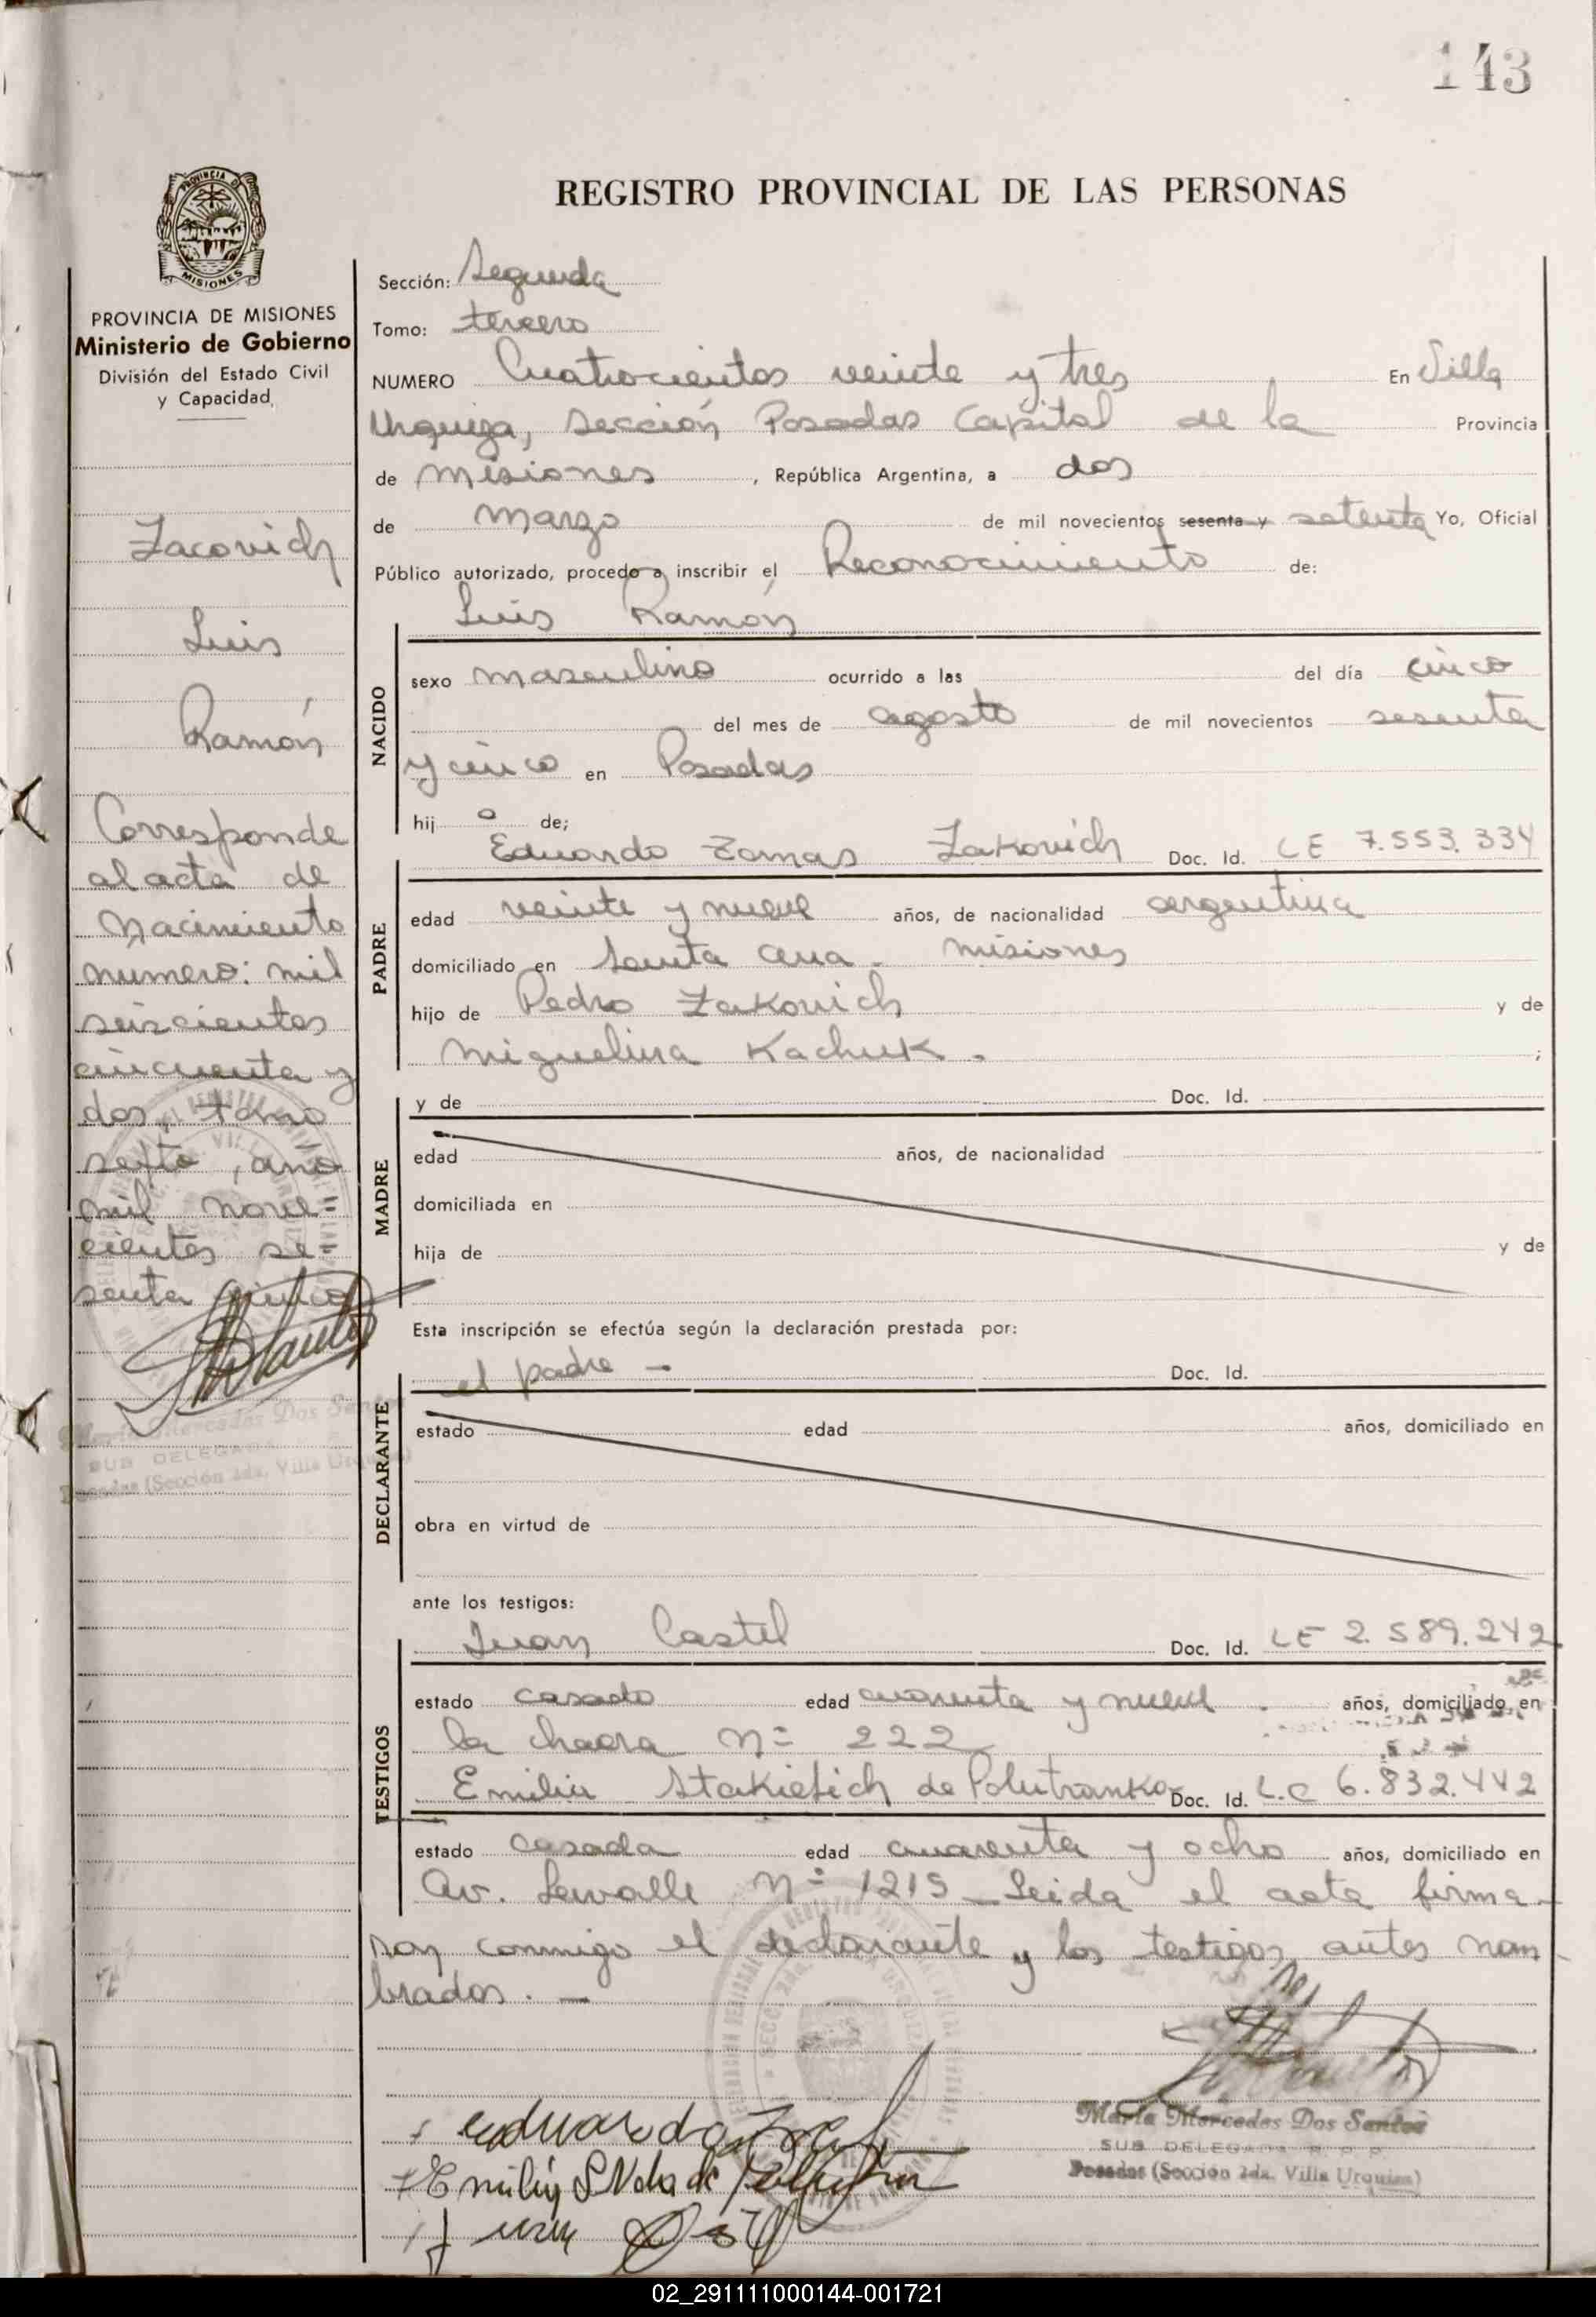 143
REGISTRO PROVINCIAL DE LAS PERSONAS
PROVINCIA DE
MISIONES
PROVINCIA DE MISIONES
Ministerio de Gobierno
División del Estado Civil
y Capacidad
Zacovich
Luis
Ramón
Corresponde
al acta de
Nacimiento
número: mil
seiscientos
cincuenta y
dos, tomo
sexto, ano
mil nove=
cientos se=
senta cinco
Maria Mercedes Dos Santos
SUB DELEGADA
Posadas (Sección 2da. Villa Urquiza)
Sección: Segunda
Tomo: tercero
NUMERO Cuatrocientos veinte y tres En Villa
Urquiza, Sección Posadas Capital de la Provincia
de Misiones, República Argentina, a dos
de Marzo de mil novecientos sesenta y setenta Yo, Oficial
Público autorizado, procedo a inscribir el Reconocimiento de:
Luis Ramón
NACIDO
sexo masculino ocurrido a las del día cinco
del mes de agosto de mil novecientos sesenta
y cinco en Posadas
hij o de;
Eduardo Tomas Zakovich Doc. Id. LE 7.553.334
PADRE
edad veinte y nueve años, de nacionalidad argentina
domiciliado en Santa Ana - Misiones
hijo de Pedro Zakovich y de
Miguelina Kachuk. ;
y de Doc. Id.
MADRE
edad años, de nacionalidad
domiciliada en
hija de y de
Esta inscripción se efectúa según la declaración prestada por:
el padre - Doc. Id.
DECLARANTE
estado edad años, domiciliado en
obra en virtud de
ante los testigos:
Juan Castel Doc. Id. LE 2.589.242
TESTIGOS
estado casado edad cuarenta y nueve años, domiciliado en
la chacra Nº 222
Emilia de Polutranko Doc. Id. L.C 6.832.442
estado casada edad cuarenta y ocho años, domiciliado en
Av. Lavalle Nº 1215 - Leida el acta firma-
ron conmigo el declarante y los testigos antes nom-
brados. -
Eduardo
Emilia de
Juan
Maria Mercedes Dos Santos
SUB DELEGADA R. P. P.
Posadas (Sección 2da. Villa Urquiza)
02_291111000144-001721